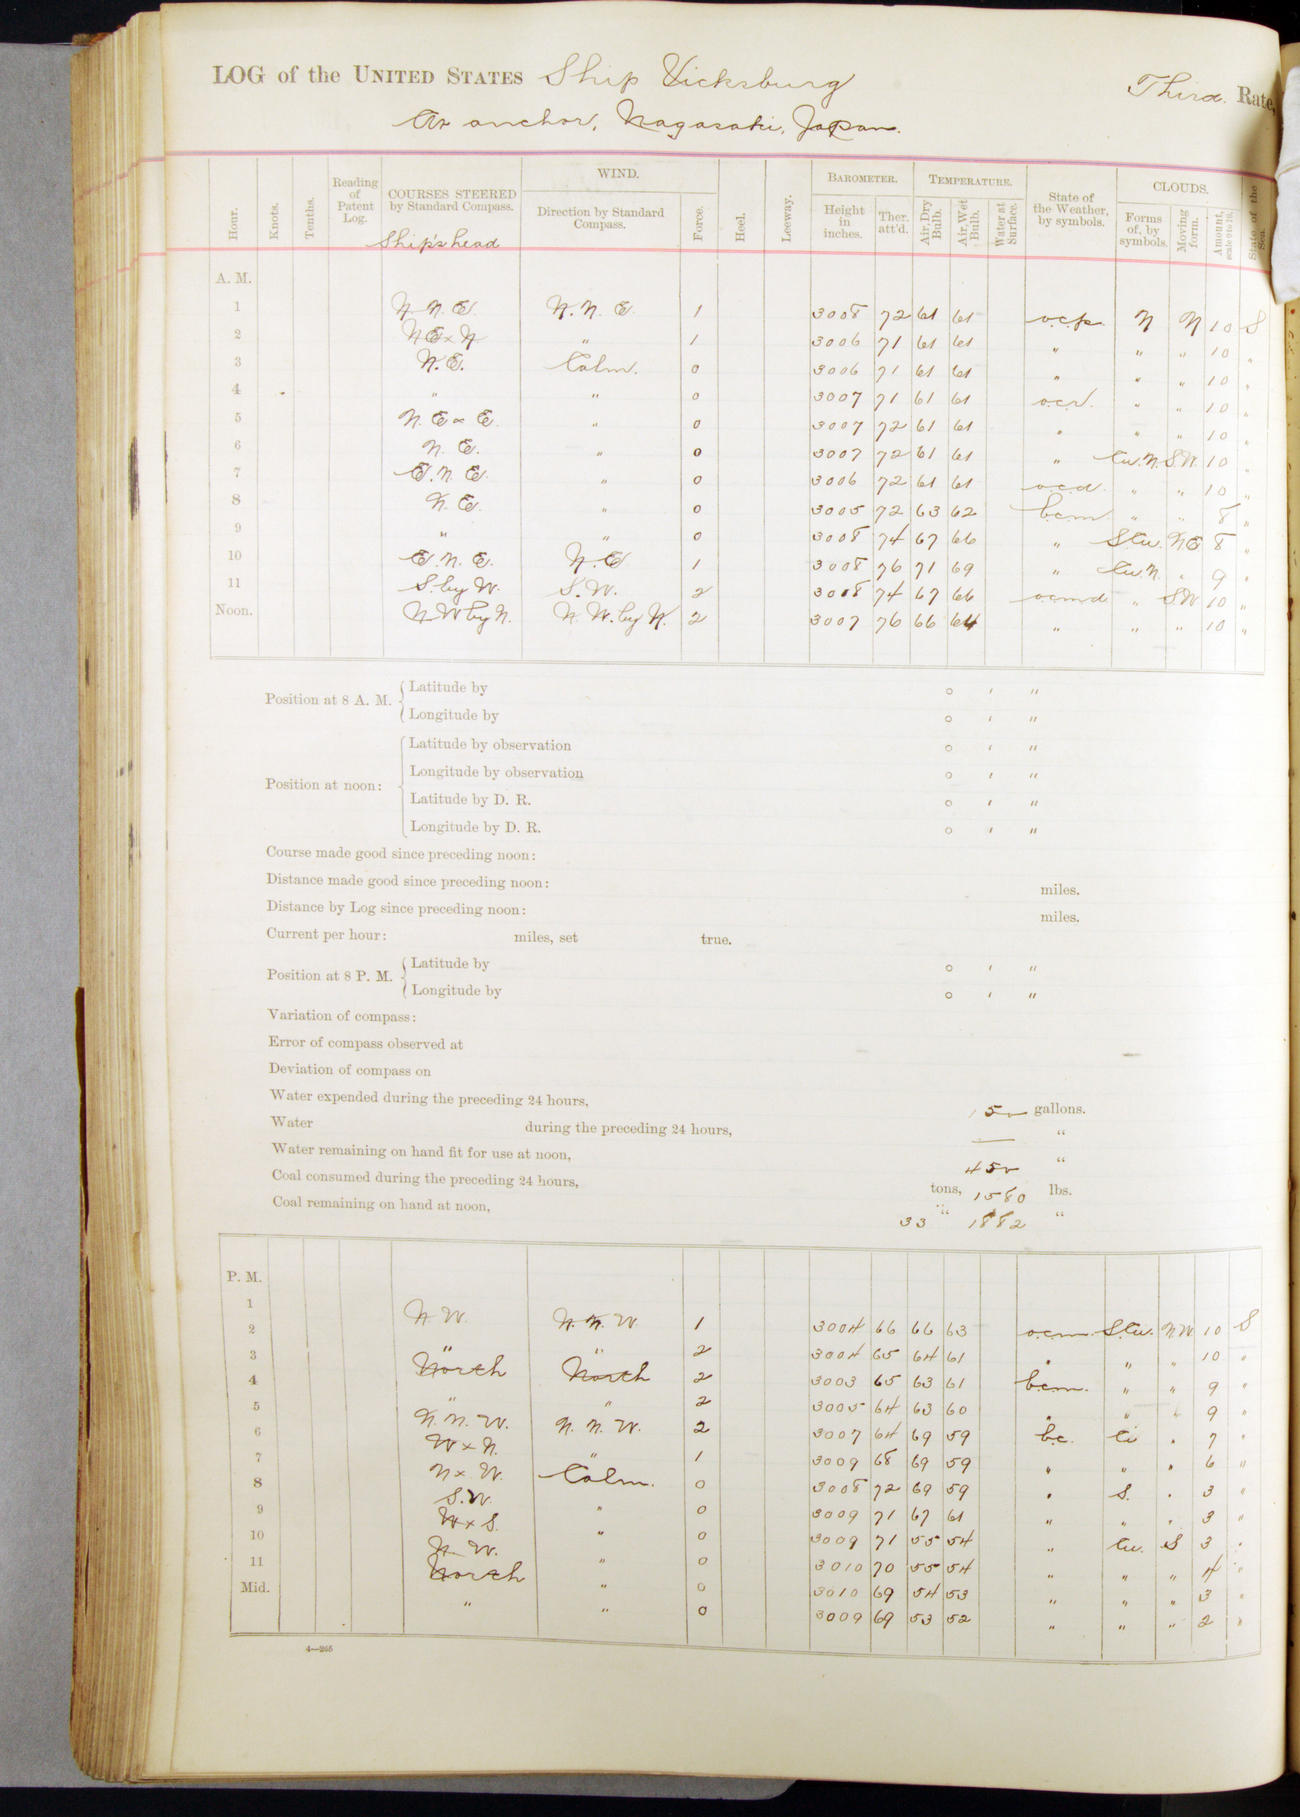 LOG of the UNITED STATES Ship Vicksburg Third Rate,
At anchor, Nagasaki, Japan.
Hour. Knots. Tenths. Reading of Patent Log. COURSES STEERED by Standard Compass. WIND. Direction by Standard Compass. Force. Heel. Leeway. BAROMETER. Height in inches. Ther. att'd. TEMPERATURE. Air, Dry Bulb. Air, Wet Bulb. Water at Surface. State of the Weather, by symbols. CLOUDS. Forms of, by symbols. Moving form. Amount, scale 0 to 10. State of the Sea.
Ship's head
A. M.
1 N.N.E. N.N.E. 1 3008 72 61 61 o.c.p. N N 10 S
2 NExN " 1 3006 71 61 61 " " " 10 "
3 N.E. Calm. 0 3006 71 61 61 " " " 10 "
4 " " 0 3007 71 61 61 o.c.r. " " 10 "
5 N.E x E. " 0 3007 72 61 61 " " " 10 "
6 N.E. " 0 3007 72 61 61 " Cu.N. S.W. 10 "
7 E.N.E. " 0 3006 72 61 61 o.c.d. " " 10 "
8 N.E. " 0 3005 72 63 62 b.c.m " " 8 "
9 " " 0 3008 74 67 66 " S.Cu. N.E 8 "
10 E.N.E. N.E 1 3008 76 71 69 " Cu.N. " 9 "
11 S.by W. S.W. 2 3008 74 67 66 o.c.m.d " S.W 10 "
Noon. N.W by N. N.W. by N. 2 3007 76 66 64 " " " 10 "
Position at 8 A. M. Latitude by ° ′ ″
Longitude by ° ′ ″
Position at noon: Latitude by observation ° ′ ″
Longitude by observation ° ′ ″
Latitude by D. R. ° ′ ″
Longitude by D. R. ° ′ ″
Course made good since preceding noon:
Distance made good since preceding noon: miles.
Distance by Log since preceding noon: miles.
Current per hour: miles, set true.
Position at 8 P. M. Latitude by ° ′ ″
Longitude by ° ′ ″
Variation of compass:
Error of compass observed at
Deviation of compass on
Water expended during the preceding 24 hours, 150 gallons.
Water during the preceding 24 hours, — "
Water remaining on hand fit for use at noon, 450 "
Coal consumed during the preceding 24 hours, tons, 1580 lbs.
Coal remaining on hand at noon, 33 " 1882 "
P. M.
1 N.W. N.N.W 1 3004 66 66 63 o.c.m. S.Cu. N.W 10 S
2 " " 2 3004 65 64 61 " " " 10 "
3 North North 2 3003 65 63 61 b.c.m. " " 9 "
4 " " 2 3005 64 63 60 " " " 9 "
5 N.N.W. N.N.W. 2 3007 64 69 59 b.c. Ci " 7 "
6 W x N. " 1 3009 68 69 59 " " " 6 "
7 N x W. Calm. 0 3008 72 69 59 " S. " 3 "
8 S.W. " 0 3009 71 67 61 " " " 3 "
9 W x S. " 0 3009 71 55 54 " Cu. S 3 "
10 N.W. " 0 3010 70 55 54 " " " 4 "
11 North " 0 3010 69 54 53 " " " 3 "
Mid. " " 0 3009 69 53 52 " " " 2 "
4—265